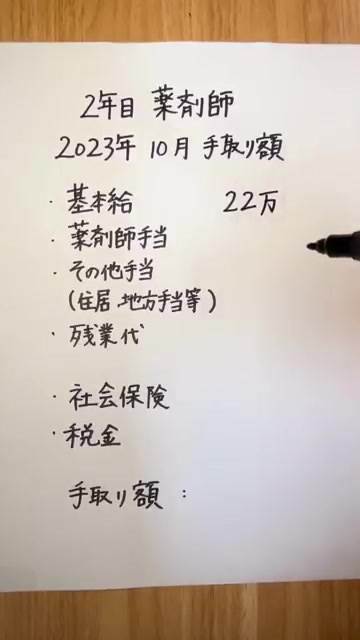 2年目 薬剤師
2023年 10月 手取り額
・基本給 22万
・薬剤師手当
・その他手当
(住居、地方手当等)
・残業代
・社会保険
・税金
手取り額 :